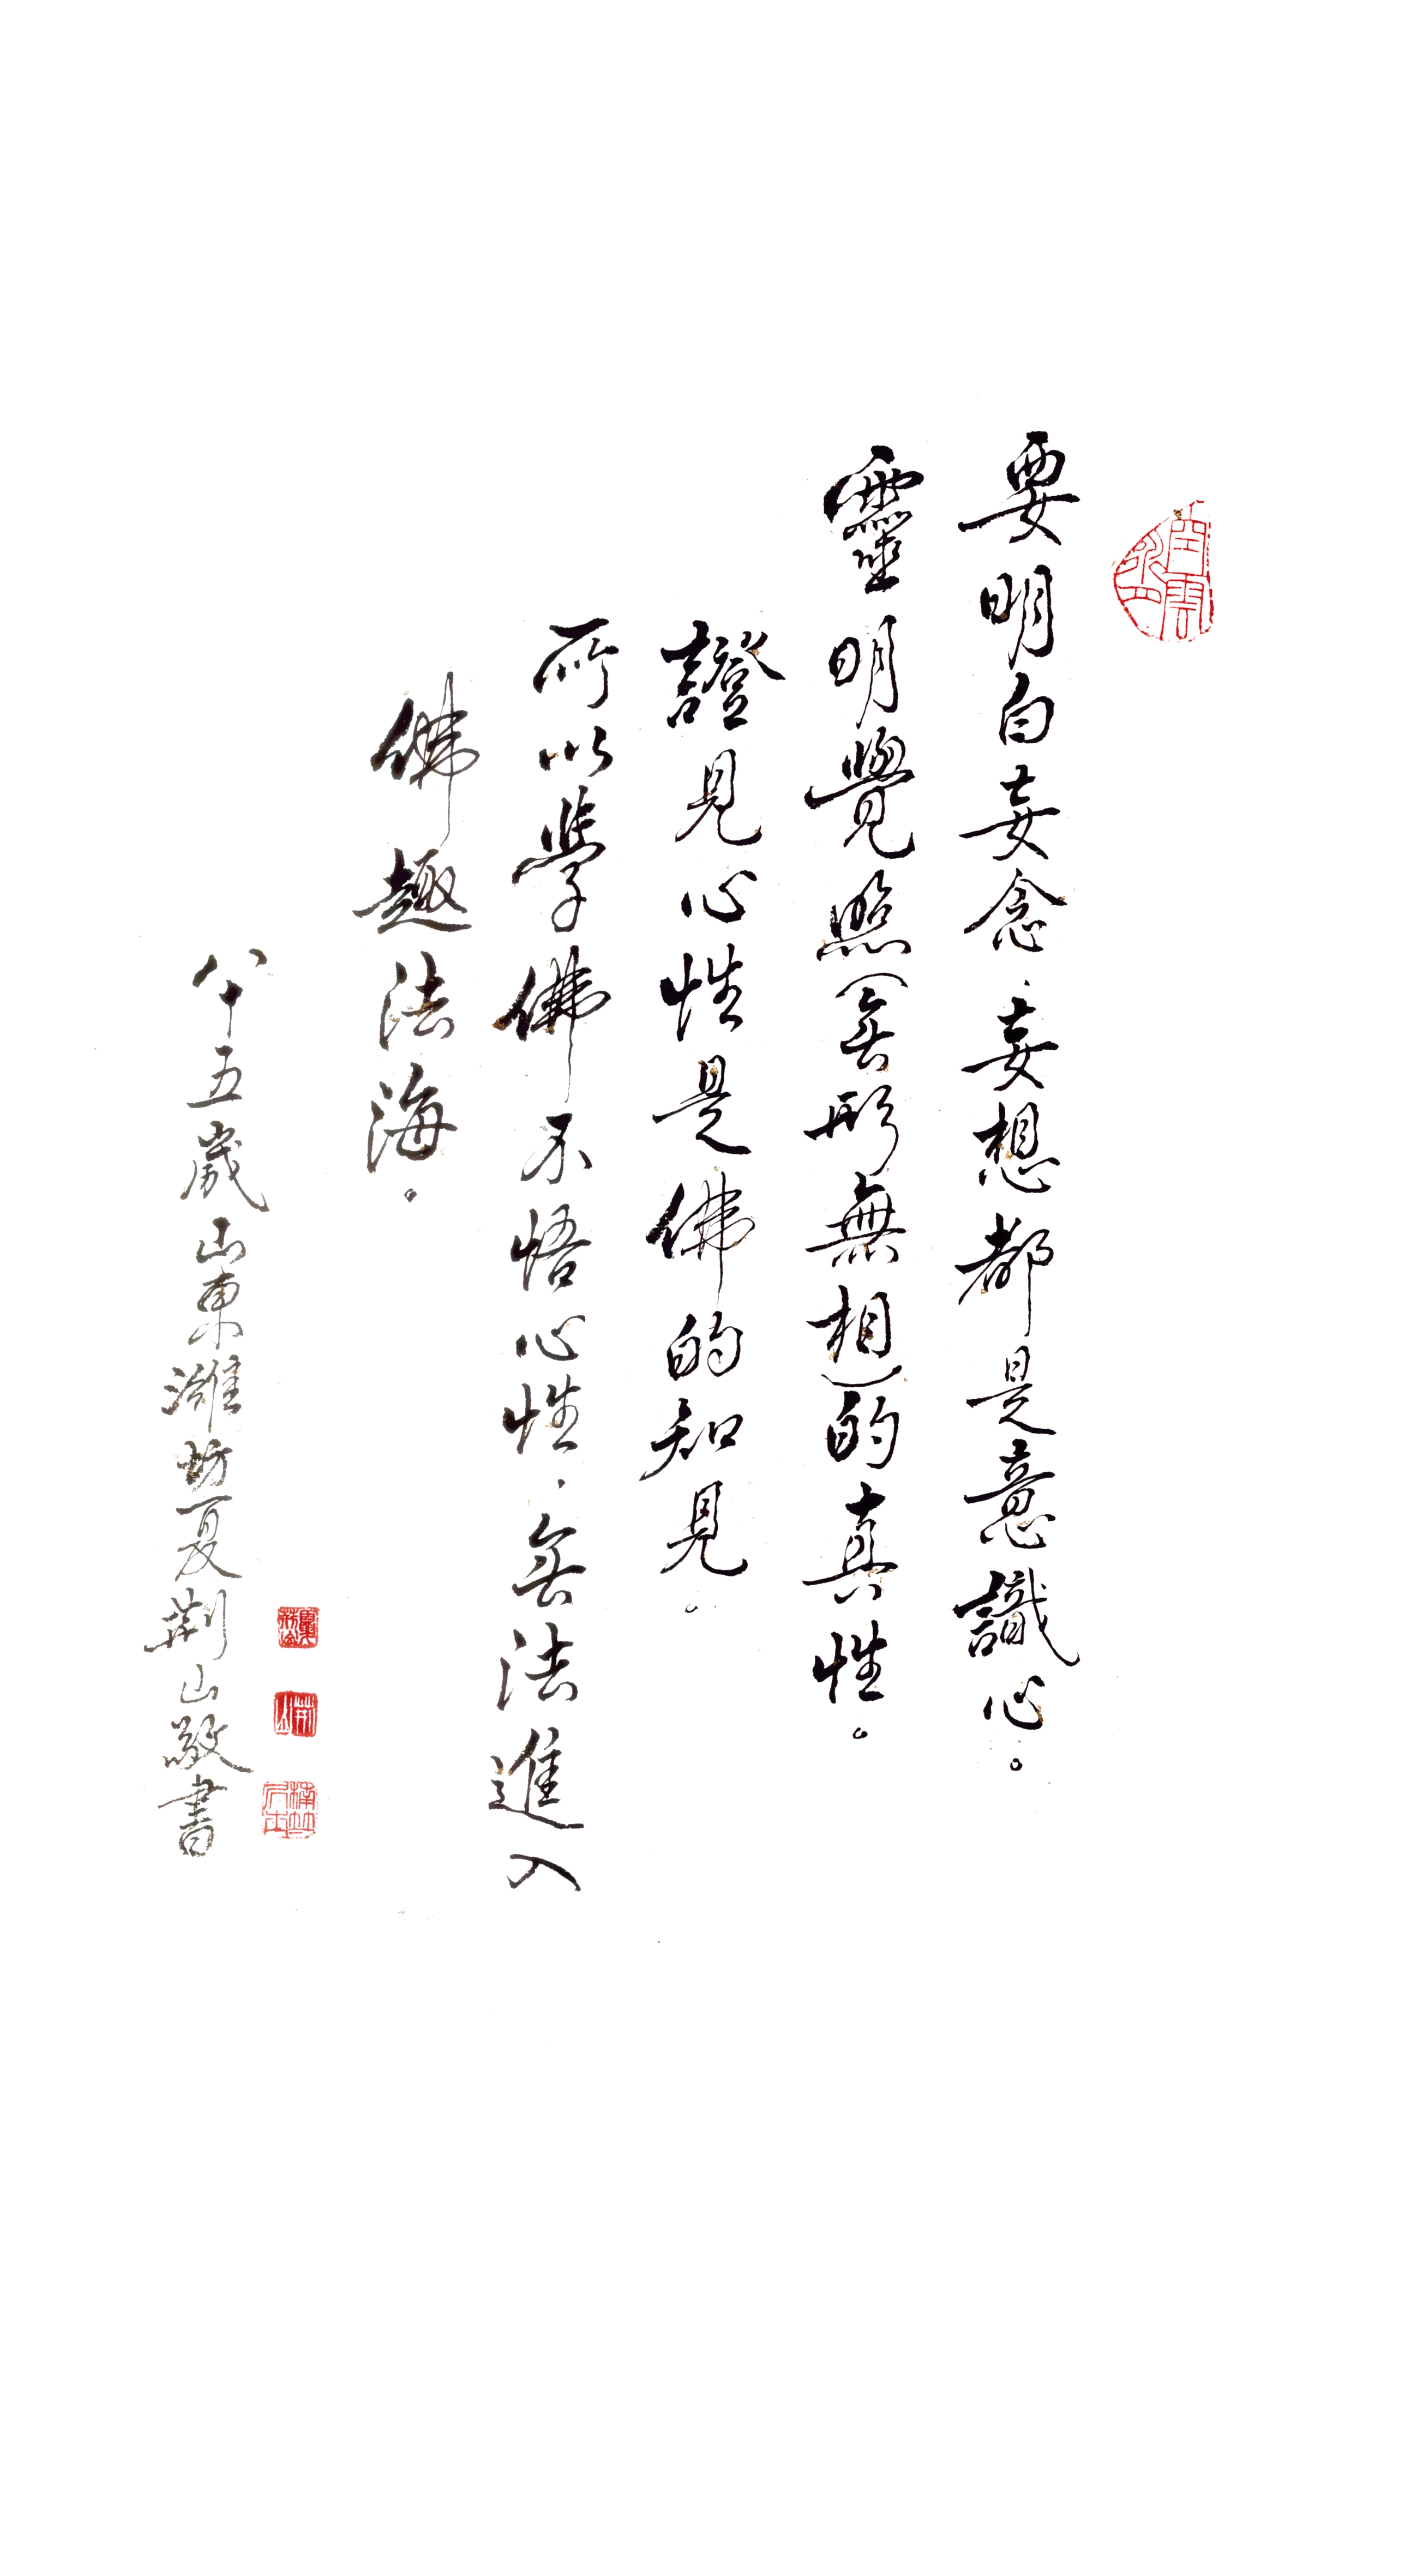 要明白妄念、妄想都是意識心。
靈明覺照(無形無相)的真性。
證見心性是佛的知見。
所以學佛不悟心性、無法進入
佛趣法海。
八十五歲山東濰坊夏荆山敬書
荆山